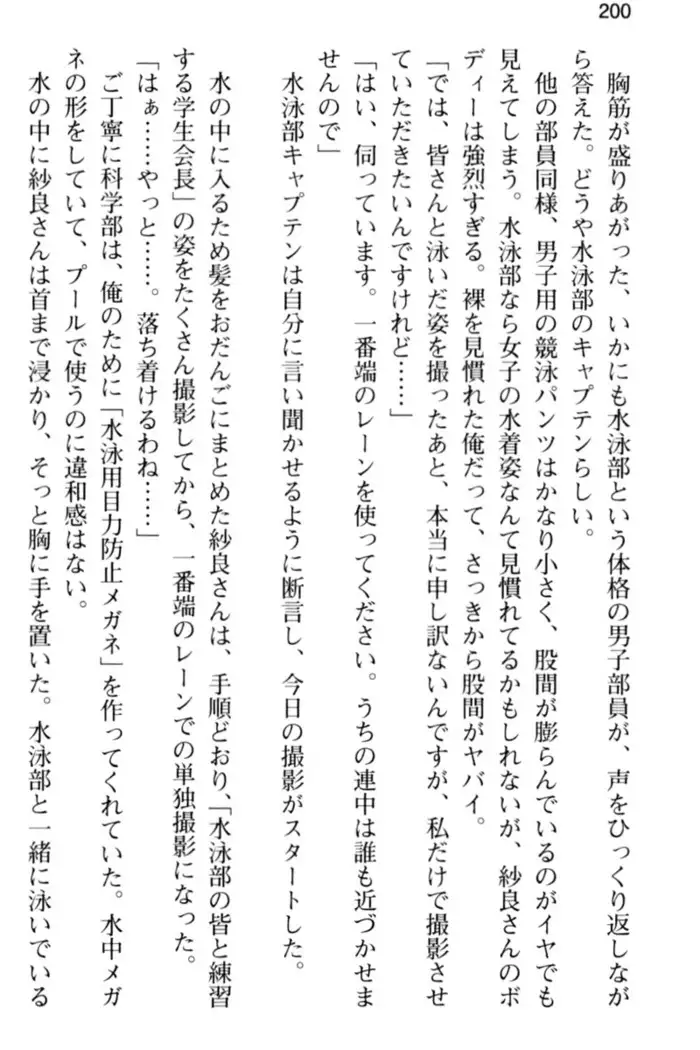 200
胸筋が盛りあがった、いかにも水泳部という体格の男子部員が、声をひっくり返しなが
ら答えた。どうや水泳部のキャプテンらしい。
他の部員同様、男子用の競泳パンツはかなり小さく、股間が膨らんでいるのがイヤでも
見えてしまう。水泳部なら女子の水着姿なんて見慣れてるかもしれないが、紗良さんのボ
ディーは強烈すぎる。裸を見慣れた俺だって、さっきから股間がヤバイ。
「では、皆さんと泳いだ姿を撮ったあと、本当に申し訳ないんですが、私だけで撮影させ
ていただきたいんですけれど……」
「はい、伺っています。一番端のレーンを使ってください。うちの連中は誰も近づかせま
せんので」
水泳部キャプテンは自分に言い聞かせるように断言し、今日の撮影がスタートした。
水の中に入るため髪をおだんごにまとめた紗良さんは、手順どおり、「水泳部の皆と練習
する学生会長」の姿をたくさん撮影してから、一番端のレーンでの単独撮影になった。
「はぁ……やっと……。落ち着けるわね……」
ご丁寧に科学部は、俺のために「水泳用目力防止メガネ」を作ってくれていた。水中メガ
ネの形をしていて、プールで使うのに違和感はない。
水の中に紗良さんは首まで浸かり、そっと胸に手を置いた。水泳部と一緒に泳いでいる